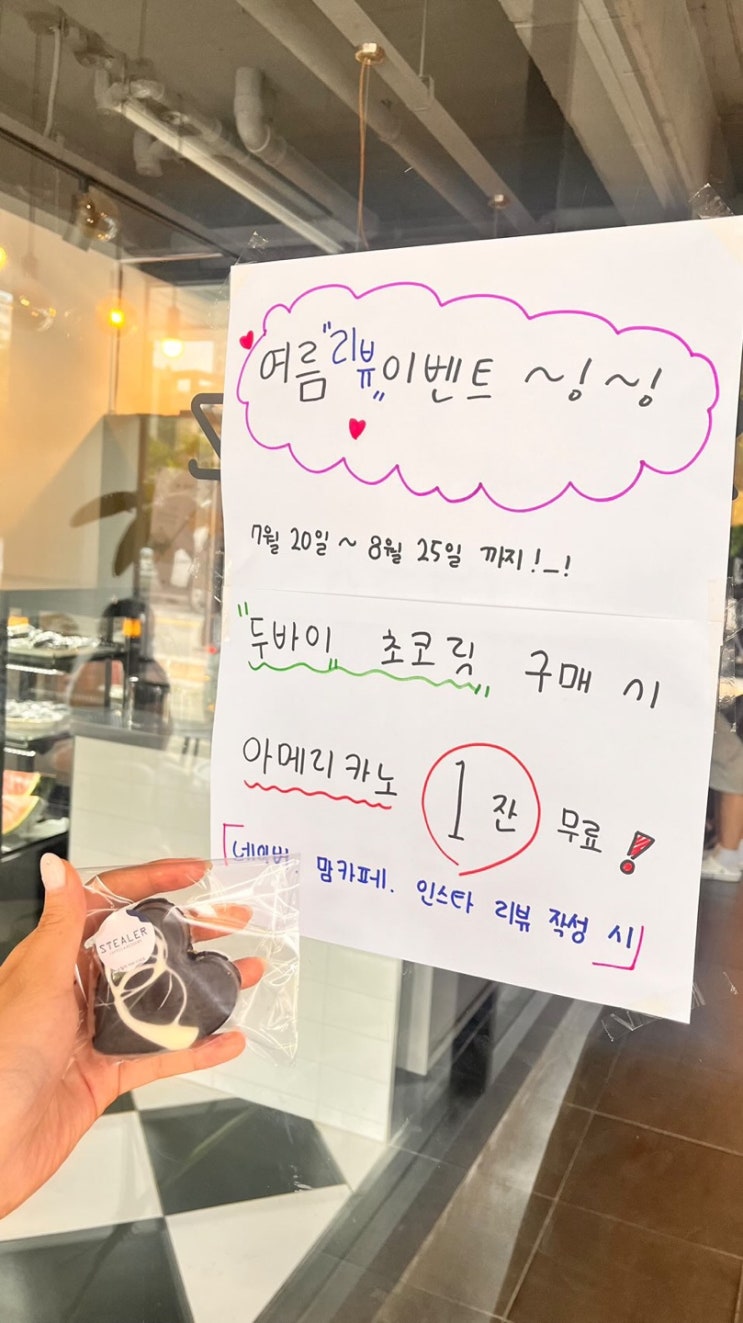 여름"리뷰"이벤트 ~!~!
7월 20일 ~ 8월 25일 까지!_!
"두바이" 초코릿" 구매 시
아메리카노 1잔 무료!
「네이버. 맘카페. 인스타 리뷰 작성 시」
STEALER